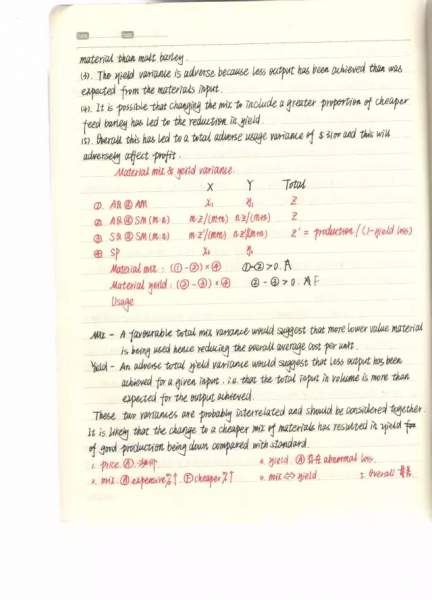 material than malt barley.
(3). The yield variance is adverse because less output has been achieved than was
expected from the materials input.
(4). It is possible that changing the mix to include a greater proportion of cheaper
feed barley has led to the reduction in yield.
(5). Overall this has led to a total adverse usage variance of $ 3100 and this will
adversely affect profit.
Material mix & yeild variance.
X Y Total
①. AQ @ AM x₁ y₁ z
② AQ @ SM (m:n) m·z/(m+n) n·z/(m+n) z
③ SQ @ SM (m:n) m·z'/(m+n) n·z'/(m+n) z' = production / (1-yield loss)
④ SP
Material mix : (①-②)×④ ①-②>0. A
Material yeild : (②-③)×④ ②-③>0. A F
Usage
Mix - A favourable total mix variance would suggest that more lower value material
is being used hence reducing the overall average cost per unit.
Yield - An adverse total yield variance would suggest that less output has been
achieved for a given input. i.e. that the total input in volume is more than
expected for the output achieved.
These two variances are probably interrelated and should be considered together.
It is likely that the change to a cheaper mix of materials has resulted in yield
of good production being down compared with standard.
1. price. Ⓐ. yield. Ⓐ 存在 abnormal loss.
mix. Ⓐ expensive %↑. Ⓕ cheaper %↑ mix ⇔ yield 5. Overall